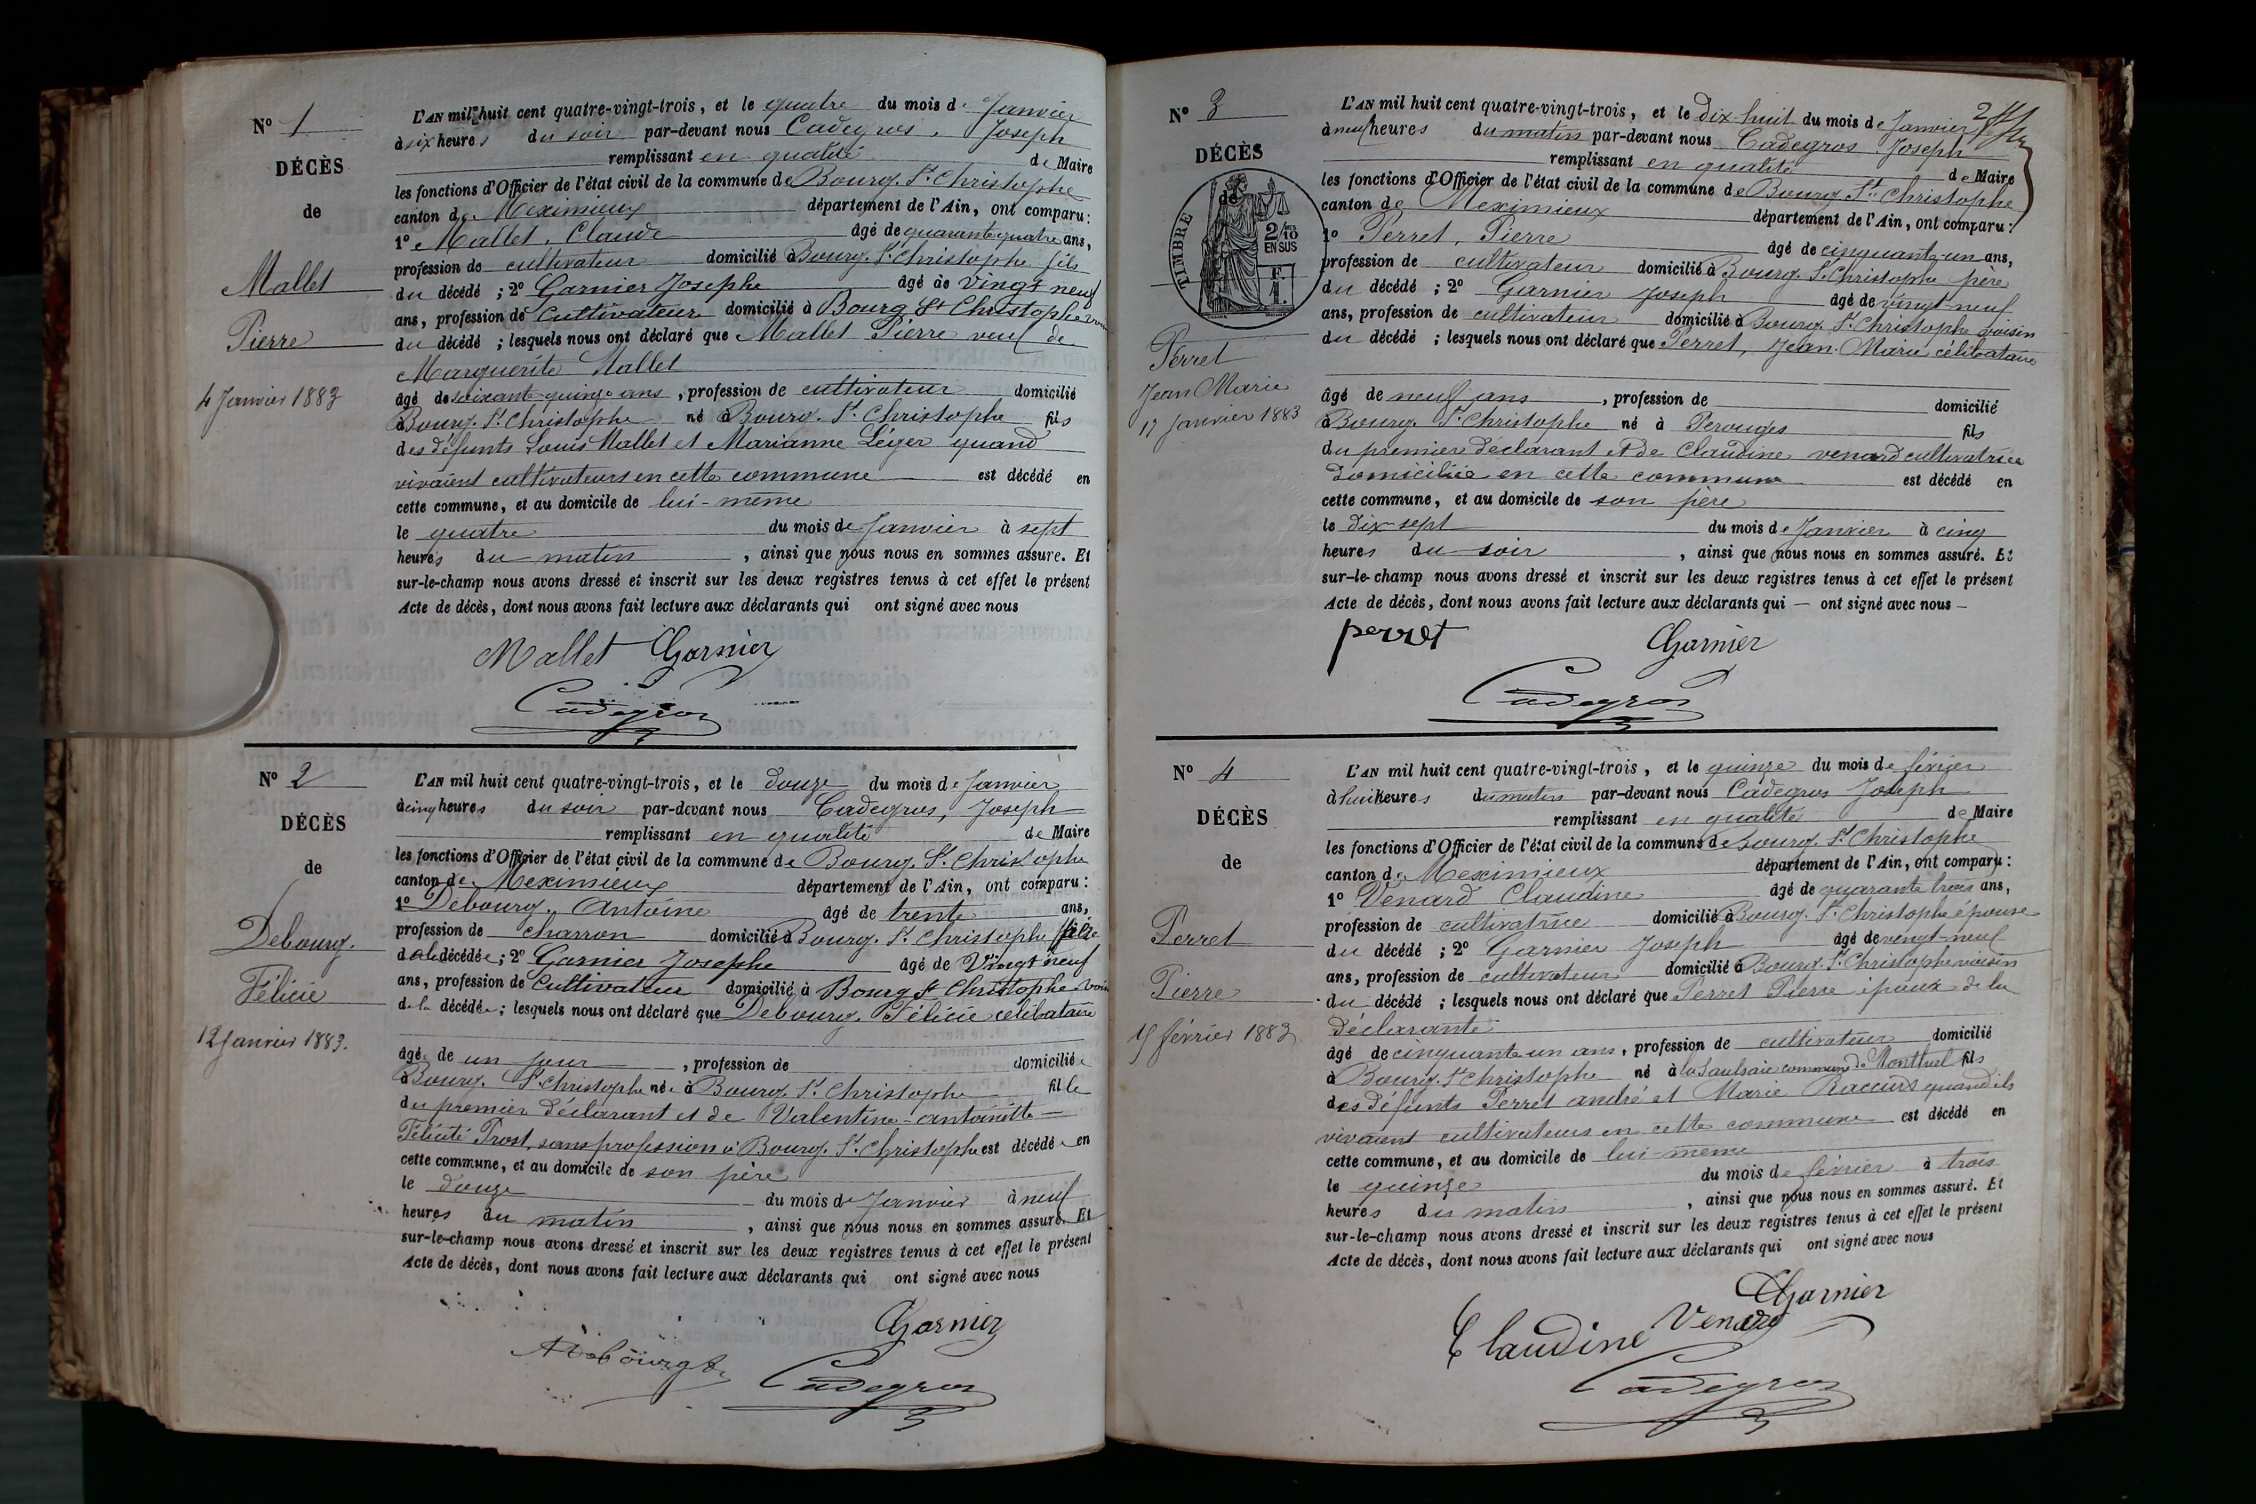 N° 1
DÉCÈS
de
Mallet
Pierre
4 Janvier 1883
L'AN mil huit cent quatre-vingt-trois, et le quatre du mois de Janvier
à six heures du soir par-devant nous Cadegros, Joseph
remplissant en qualité de Maire
les fonctions d'Officier de l'état civil de la commune de Bourg St Christophe
canton de Meximieux département de l'Ain, ont comparu :
1° Mallet, Claude âgé de quarante quatre ans,
profession de cultivateur domicilié à Bourg. St Christophe fils
du décédé ; 2° Garnier Josephe âgé de vingt neuf
ans, profession de Cultivateur domicilié à Bourg St Christophe
du décédé ; lesquels nous ont déclaré que Mallet Pierre veuf de
Marguerite Mallet
âgé de soixante-quinze ans, profession de cultivateur domicilié
à Bourg. St Christophe né à Bourg. St Christophe fils
des défunts Louis Mallet et Marianne Léger quand
vivaient cultivateurs en cette commune est décédé en
cette commune, et au domicile de lui-même
le quatre du mois de Janvier à sept
heures du matin, ainsi que nous nous en sommes assuré. Et
sur-le-champ nous avons dressé et inscrit sur les deux registres tenus à cet effet le présent
Acte de décès, dont nous avons fait lecture aux déclarants qui ont signé avec nous
Mallet Garnier
Cadegros
N° 2
DÉCÈS
de
Debourg.
Félicie
12 Janvier 1883.
L'AN mil huit cent quatre-vingt-trois, et le douze du mois de Janvier
à cinq heures du soir par-devant nous Cadegros, Joseph
remplissant en qualité de Maire
les fonctions d'Officier de l'état civil de la commune de Bourg. St Christophe
canton de Meximieux département de l'Ain, ont comparu :
1° Debourg, Antoine âgé de trente ans,
profession de charron domicilié à Bourg. St Christophe
de la décédée ; 2° Garnier Josephe âgé de Vingt neuf
ans, profession de Cultivateur domicilié à Bourg St Christophe
de la décédée ; lesquels nous ont déclaré que Debourg. Félicie célibataire
âgée de un jour, profession de domiciliée
à Bourg. St Christophe née à Bourg. St Christophe fille
du premier déclarant et de Valentine-antoinette
Félicité Prost, sans profession à Bourg. St Christophe est décédée en
cette commune, et au domicile de son père
le douze du mois de Janvier à neuf
heures du matin, ainsi que nous nous en sommes assuré. Et
sur-le-champ nous avons dressé et inscrit sur les deux registres tenus à cet effet le présent
Acte de décès, dont nous avons fait lecture aux déclarants qui ont signé avec nous
Garnier
Cadegros
N° 3
DÉCÈS
de
TIMBRE
2/10
EN SUS
Perret
Jean Marie
17 Janvier 1883
L'AN mil huit cent quatre-vingt-trois, et le dix huit du mois de Janvier
à neuf heures du matin par-devant nous Cadegros Joseph
remplissant en qualité de Maire
les fonctions d'Officier de l'état civil de la commune de Bourg St Christophe
canton de Meximieux département de l'Ain, ont comparu :
1° Perret, Pierre âgé de cinquante-un ans,
profession de cultivateur domicilié à Bourg. St Christophe père
du décédé ; 2° Garnier Joseph âgé de vingt-neuf
ans, profession de cultivateur domicilié à Bourg St Christophe voisin
du décédé ; lesquels nous ont déclaré que Perret, Jean-Marie célibataire
âgé de neuf ans, profession de domicilié
à Bourg. St Christophe né à Perouges fils
du premier déclarant et de Claudine venard cultivatrice
domiciliée en cette commune est décédé en
cette commune, et au domicile de son père
le dix-sept du mois de Janvier à cinq
heures du soir, ainsi que nous nous en sommes assuré. Et
sur-le-champ nous avons dressé et inscrit sur les deux registres tenus à cet effet le présent
Acte de décès, dont nous avons fait lecture aux déclarants qui — ont signé avec nous —
perret Garnier
Cadegros
N° 4
DÉCÈS
de
Perret
Pierre
15 février 1883
L'AN mil huit cent quatre-vingt-trois, et le quinze du mois de février
à huit heures du matin par-devant nous Cadegros Joseph
remplissant en qualité de Maire
les fonctions d'Officier de l'état civil de la commune de Bourg. St Christophe
canton de Meximieux département de l'Ain, ont comparu :
1° Venard Claudine âgé de quarante trois ans,
profession de cultivatrice domicilié à Bourg. St Christophe épouse
du décédé ; 2° Garnier Joseph âgé de vingt-neuf
ans, profession de cultivateur domicilié à Bourg. St Christophe voisin
du décédé ; lesquels nous ont déclaré que Perret Pierre époux de la
déclarante
âgé de cinquante un ans, profession de cultivateur domicilié
à Bourg. St Christophe né à la Saulsaie commune de Montluel fils
des défunts Perret andré et Marie Raccurt quand ils
vivaient cultivateurs en cette commune est décédé en
cette commune, et au domicile de lui-même
le quinze du mois de février à trois
heures du matin, ainsi que nous nous en sommes assuré. Et
sur-le-champ nous avons dressé et inscrit sur les deux registres tenus à cet effet le présent
Acte de décès, dont nous avons fait lecture aux déclarants qui ont signé avec nous
Garnier
Claudine Venard
Cadegros